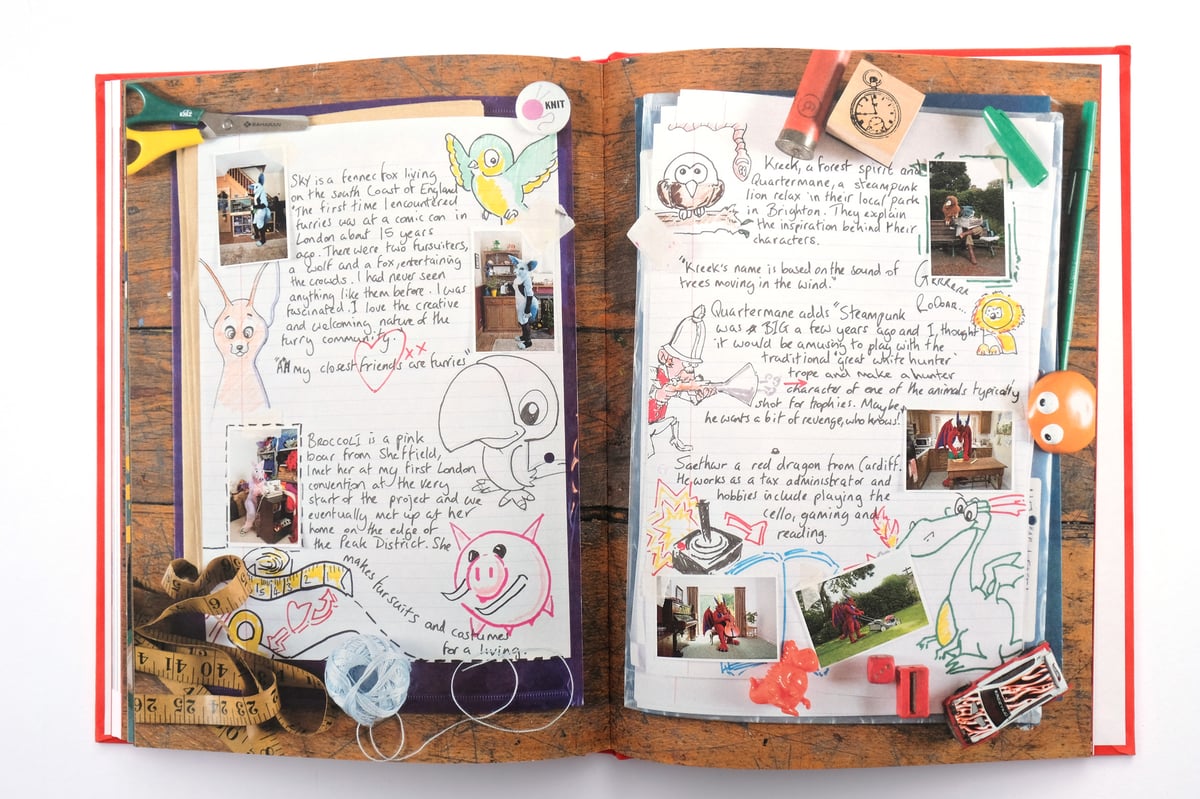 KNIT
Sky is a fennec fox living
on the south Coast of England
"The first time I encountered
furries was at a comic con in
London about 15 years
ago. There were two fursuiters,
a wolf and a fox, entertaining
the crowds. I had never seen
anything like them before. I was
fascinated. I love the creative
and welcoming nature of the
furry community.
"All my closest friends are furries"
xx
BROCCOLI is a pink
boar from Sheffield,
I met her at my first London
convention at the very
start of the project and we
eventually met up at her
home on the edge of
the Peak District. She
makes fursuits and costumes
for a living.
Kreek, a forest spirit and
Quartermane, a steampunk
lion relax in their local park
in Brighton. They explain
the inspiration behind their
characters.
"Kreek's name is based on the sound of
trees moving in the wind."
Grrrrrr
Rooarr..
Quartermane adds "Steampunk
was BIG a few years ago and I thought
it would be amusing to play with the
traditional 'great white hunter'
trope and make a hunter
character of one of the animals typically
shot for trophies. Maybe
he wants a bit of revenge, who knows!
Saethwr a red dragon from Cardiff.
He works as a tax administrator and
hobbies include playing the
cello, gaming and
reading.
6
41
40
39
26
25
24
23